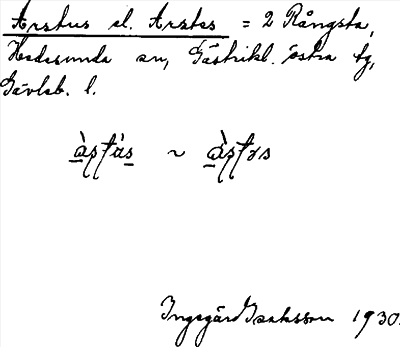 Arstus el. Arstes = 2 Rångsta,
Hedesunda sn, Gästrikl. östra tg,
Gävleb. l.
àʂʈàs ~ àʂʈəs
Ingegärd Isaksson 1930.